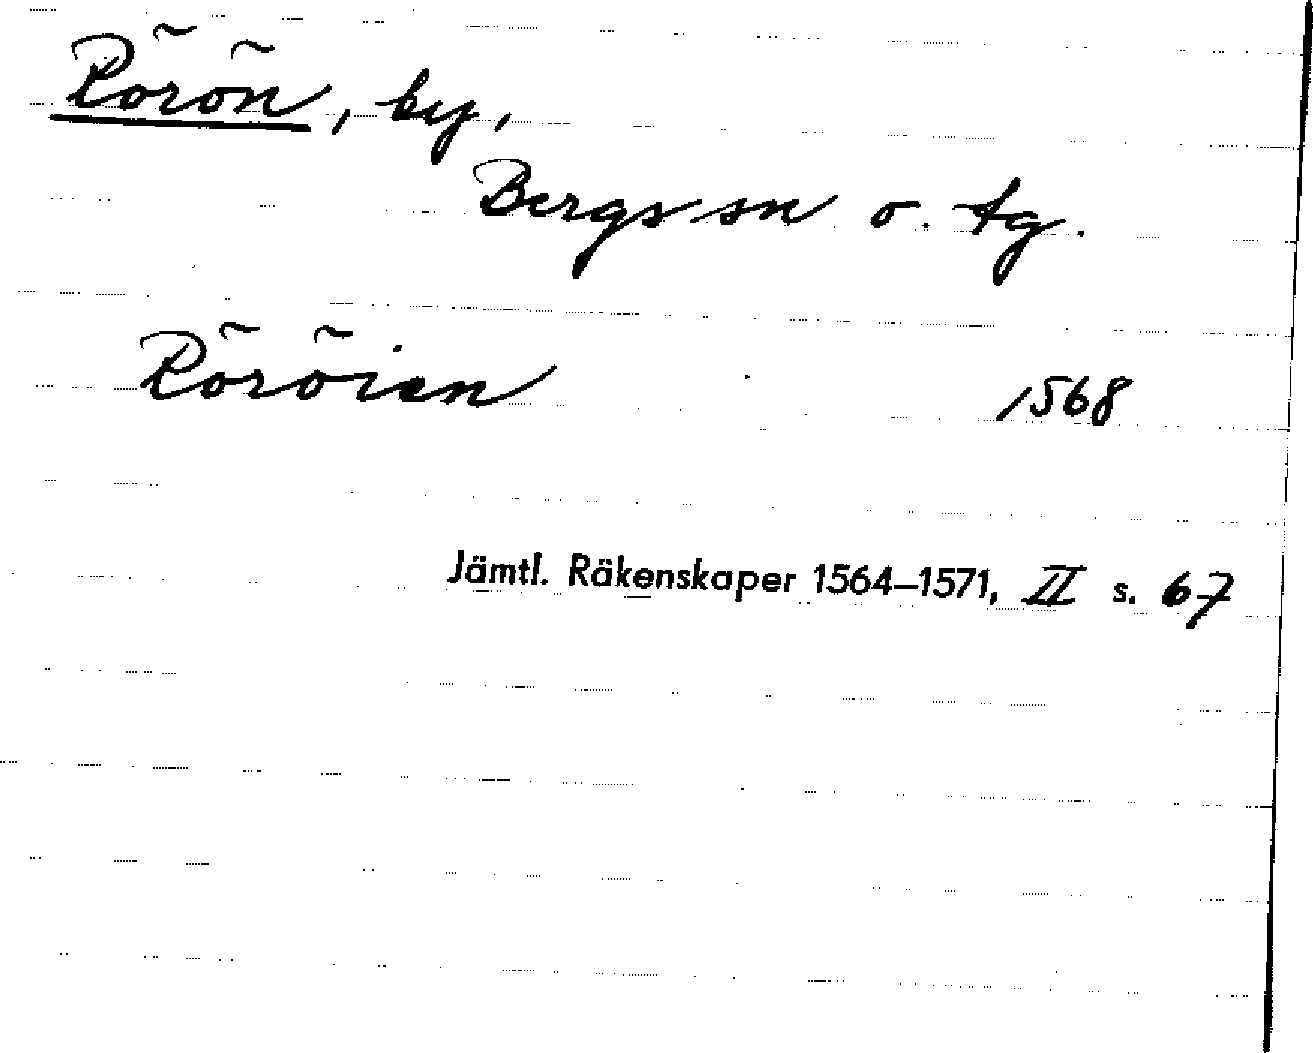 Rörön, by,
Bergs sn o. tg.
Röröien 1568
Jämtl. Räkenskaper 1564–1571, II s. 67